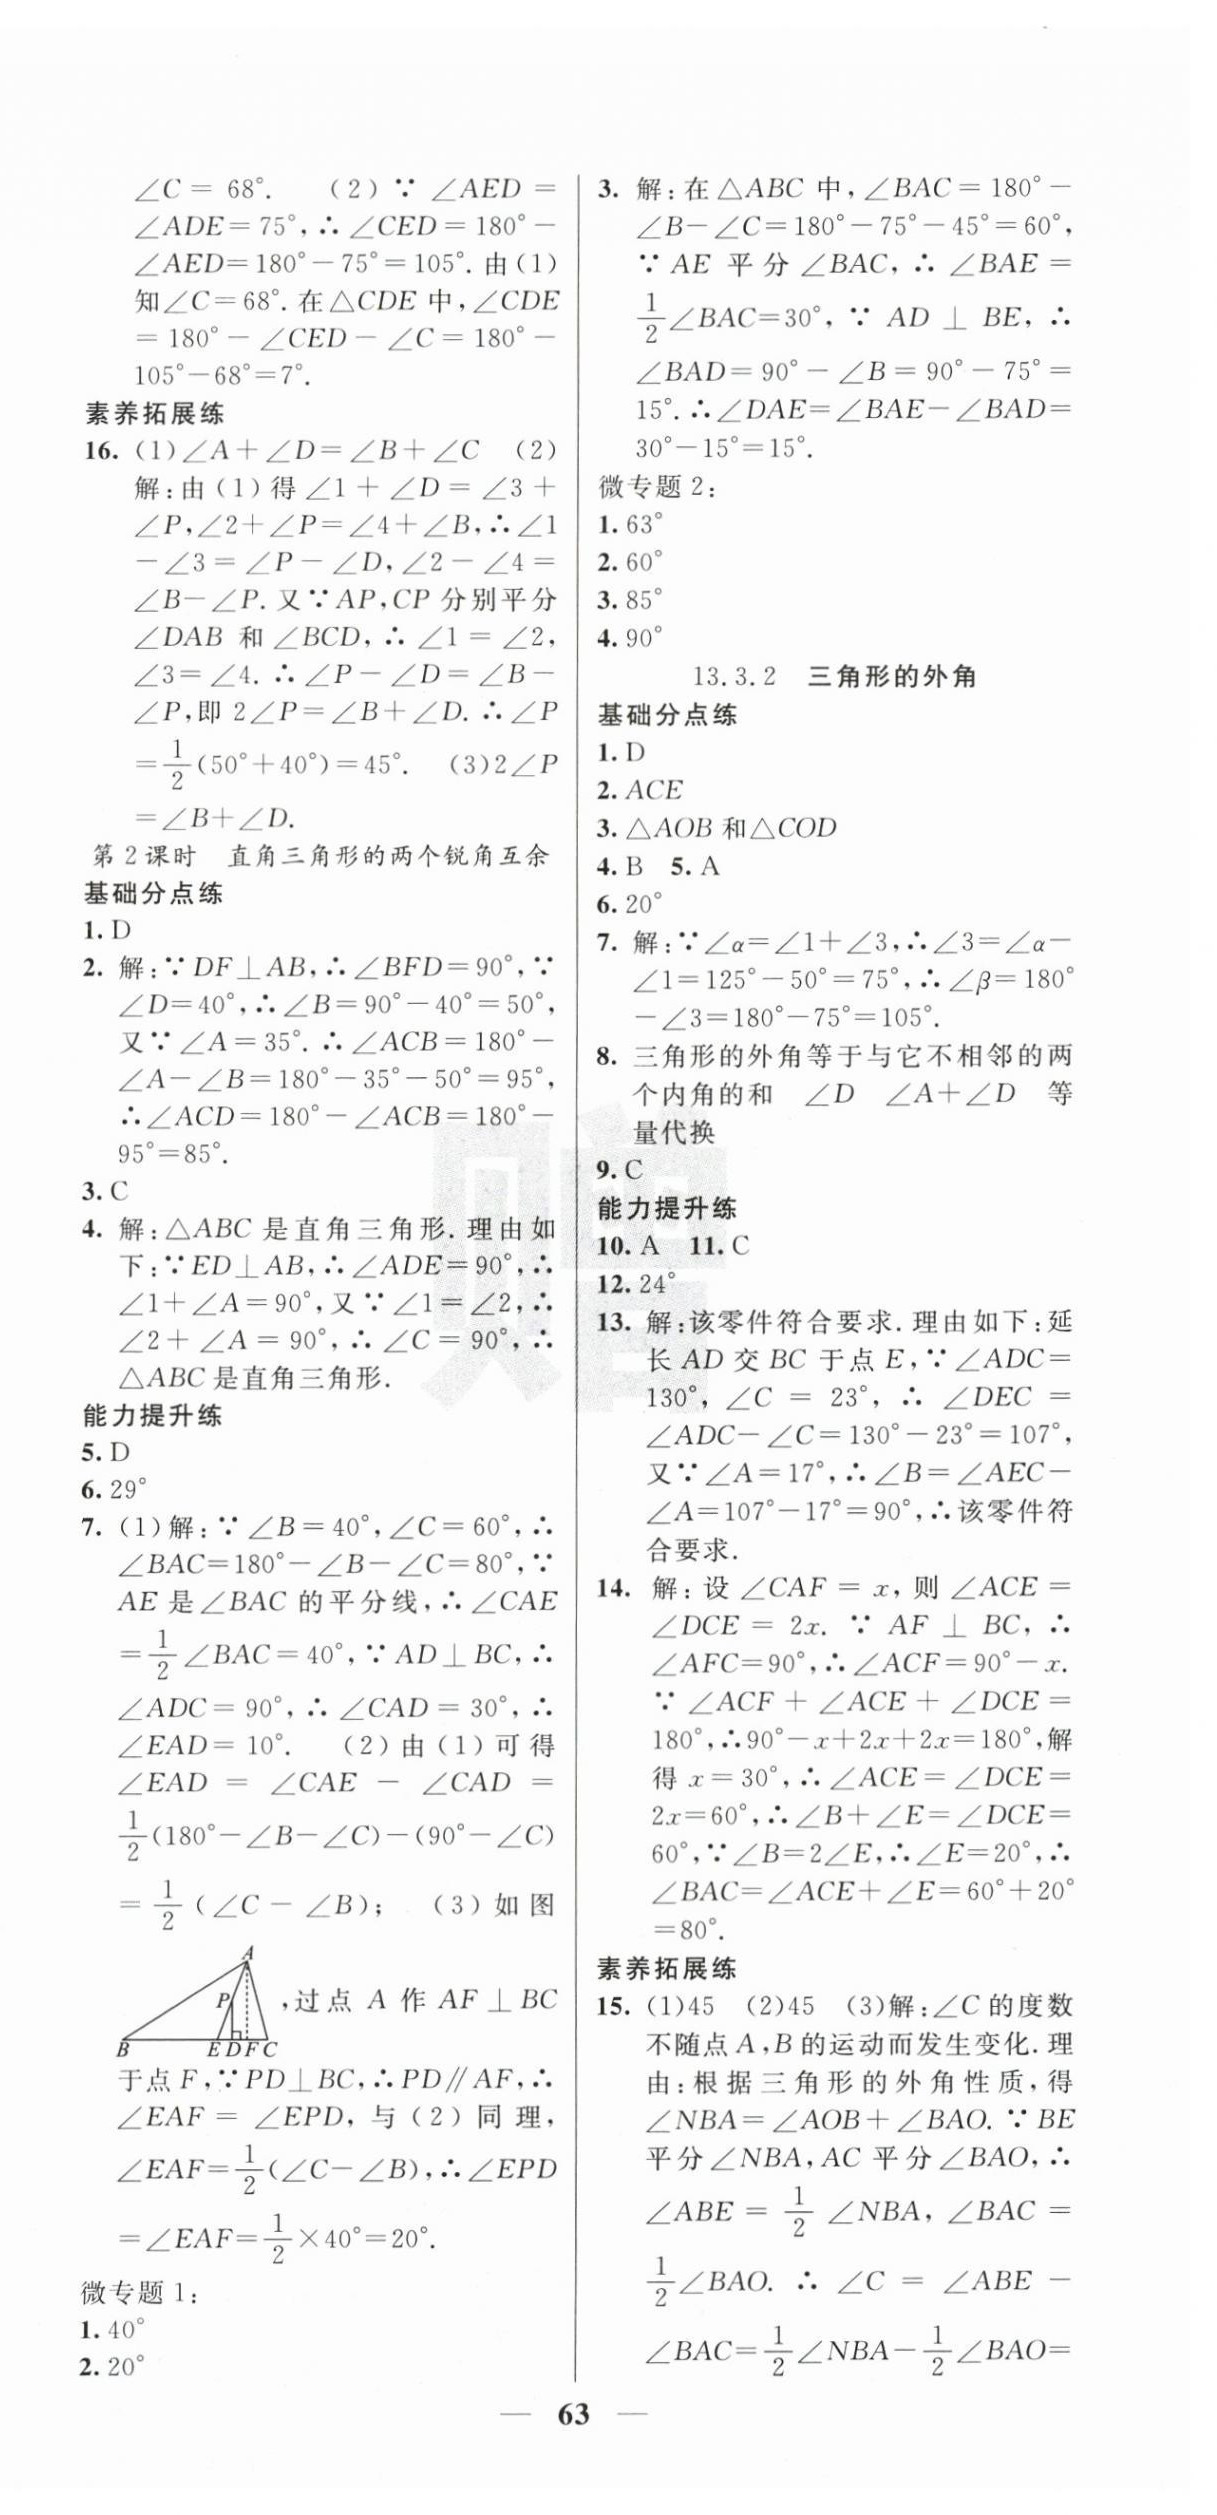 ∠C = 68°. （2）∵ ∠AED =
∠ADE=75°,∴∠CED=180°－
∠AED=180°－75°=105°. 由(1)
知∠C=68°. 在△CDE 中,∠CDE
= 180° － ∠CED － ∠C = 180° －
105°－68°=7°.
素养拓展练
16. (1)∠A+∠D=∠B+∠C (2)
解:由(1)得∠1+∠D=∠3+
∠P,∠2+∠P=∠4+∠B,∴∠1
－∠3=∠P－∠D,∠2－∠4=
∠B－∠P. 又∵AP,CP 分别平分
∠DAB 和∠BCD,∴∠1=∠2,
∠3=∠4. ∴∠P－∠D=∠B－
∠P,即 2∠P=∠B+∠D. ∴∠P
=1/2(50°+40°)=45°. (3)2∠P
=∠B+∠D.
第2课时 直角三角形的两个锐角互余
基础分点练
1. D
2. 解:∵DF⊥AB,∴∠BFD=90°,∵
∠D=40°,∴∠B=90°－40°=50°,
又∵∠A=35°. ∴∠ACB=180°－
∠A－∠B=180°－35°－50°=95°,
∴∠ACD=180°－∠ACB=180°－
95°=85°.
3. C
4. 解:△ABC 是直角三角形. 理由如
下:∵ED⊥AB,∴∠ADE=90°,∴
∠1+∠A=90°,又∵∠1=∠2,∴
∠2+∠A=90°,∴∠C=90°,∴
△ABC 是直角三角形.
能力提升练
5. D
6. 29°
7. (1)解:∵∠B=40°,∠C=60°,∴
∠BAC=180°－∠B－∠C=80°,∵
AE 是∠BAC 的平分线,∴∠CAE
=1/2∠BAC=40°,∵AD⊥BC,∴
∠ADC=90°,∴∠CAD=30°,∴
∠EAD=10°. (2)由(1)可得
∠EAD = ∠CAE － ∠CAD =
1/2(180°－∠B－∠C)－(90°－∠C)
=1/2(∠C－∠B); (3)如图
A
P
B E D F C
,过点 A 作 AF⊥BC
于点 F,∵PD⊥BC,∴PD∥AF,∴
∠EAF=∠EPD,与(2)同理,
∠EAF=1/2(∠C－∠B),∴∠EPD
=∠EAF=1/2×40°=20°.
微专题 1:
1. 40°
2. 20°
3. 解:在△ABC 中,∠BAC=180°－
∠B－∠C=180°－75°－45°=60°,
∵AE 平分∠BAC,∴∠BAE=
1/2∠BAC=30°,∵AD⊥BE,∴
∠BAD=90°－∠B=90°－75°=
15°. ∴∠DAE=∠BAE－∠BAD=
30°－15°=15°.
微专题 2:
1. 63°
2. 60°
3. 85°
4. 90°
13.3.2 三角形的外角
基础分点练
1. D
2. ACE
3. △AOB 和△COD
4. B 5. A
6. 20°
7. 解:∵∠α=∠1+∠3,∴∠3=∠α－
∠1=125°－50°=75°,∴∠β=180°
－∠3=180°－75°=105°.
8. 三角形的外角等于与它不相邻的两
个内角的和 ∠D ∠A+∠D 等
量代换
9. C
能力提升练
10. A 11. C
12. 24°
13. 解:该零件符合要求. 理由如下:延
长 AD 交 BC 于点 E,∵∠ADC=
130°,∠C = 23°,∴ ∠DEC =
∠ADC－∠C=130°－23°=107°,
又∵∠A=17°,∴∠B=∠AEC－
∠A=107°－17°=90°,∴该零件符
合要求.
14. 解:设∠CAF=x,则∠ACE=
∠DCE = 2x. ∵ AF⊥BC,∴
∠AFC=90°,∴∠ACF=90°－x.
∵∠ACF+∠ACE+∠DCE=
180°,∴90°－x+2x+2x=180°,解
得 x=30°,∴∠ACE=∠DCE=
2x=60°,∴∠B+∠E=∠DCE=
60°,∵∠B=2∠E,∴∠E=20°,∴
∠BAC=∠ACE+∠E=60°+20°
=80°.
素养拓展练
15. (1)45 (2)45 (3)解:∠C 的度数
不随点 A,B 的运动而发生变化. 理
由:根据三角形的外角性质,得
∠NBA=∠AOB+∠BAO. ∵BE
平分∠NBA,AC 平分∠BAO,∴
∠ABE=1/2∠NBA,∠BAC=
1/2∠BAO. ∴∠C=∠ABE－
∠BAC=1/2∠NBA－1/2∠BAO=
— 63 —